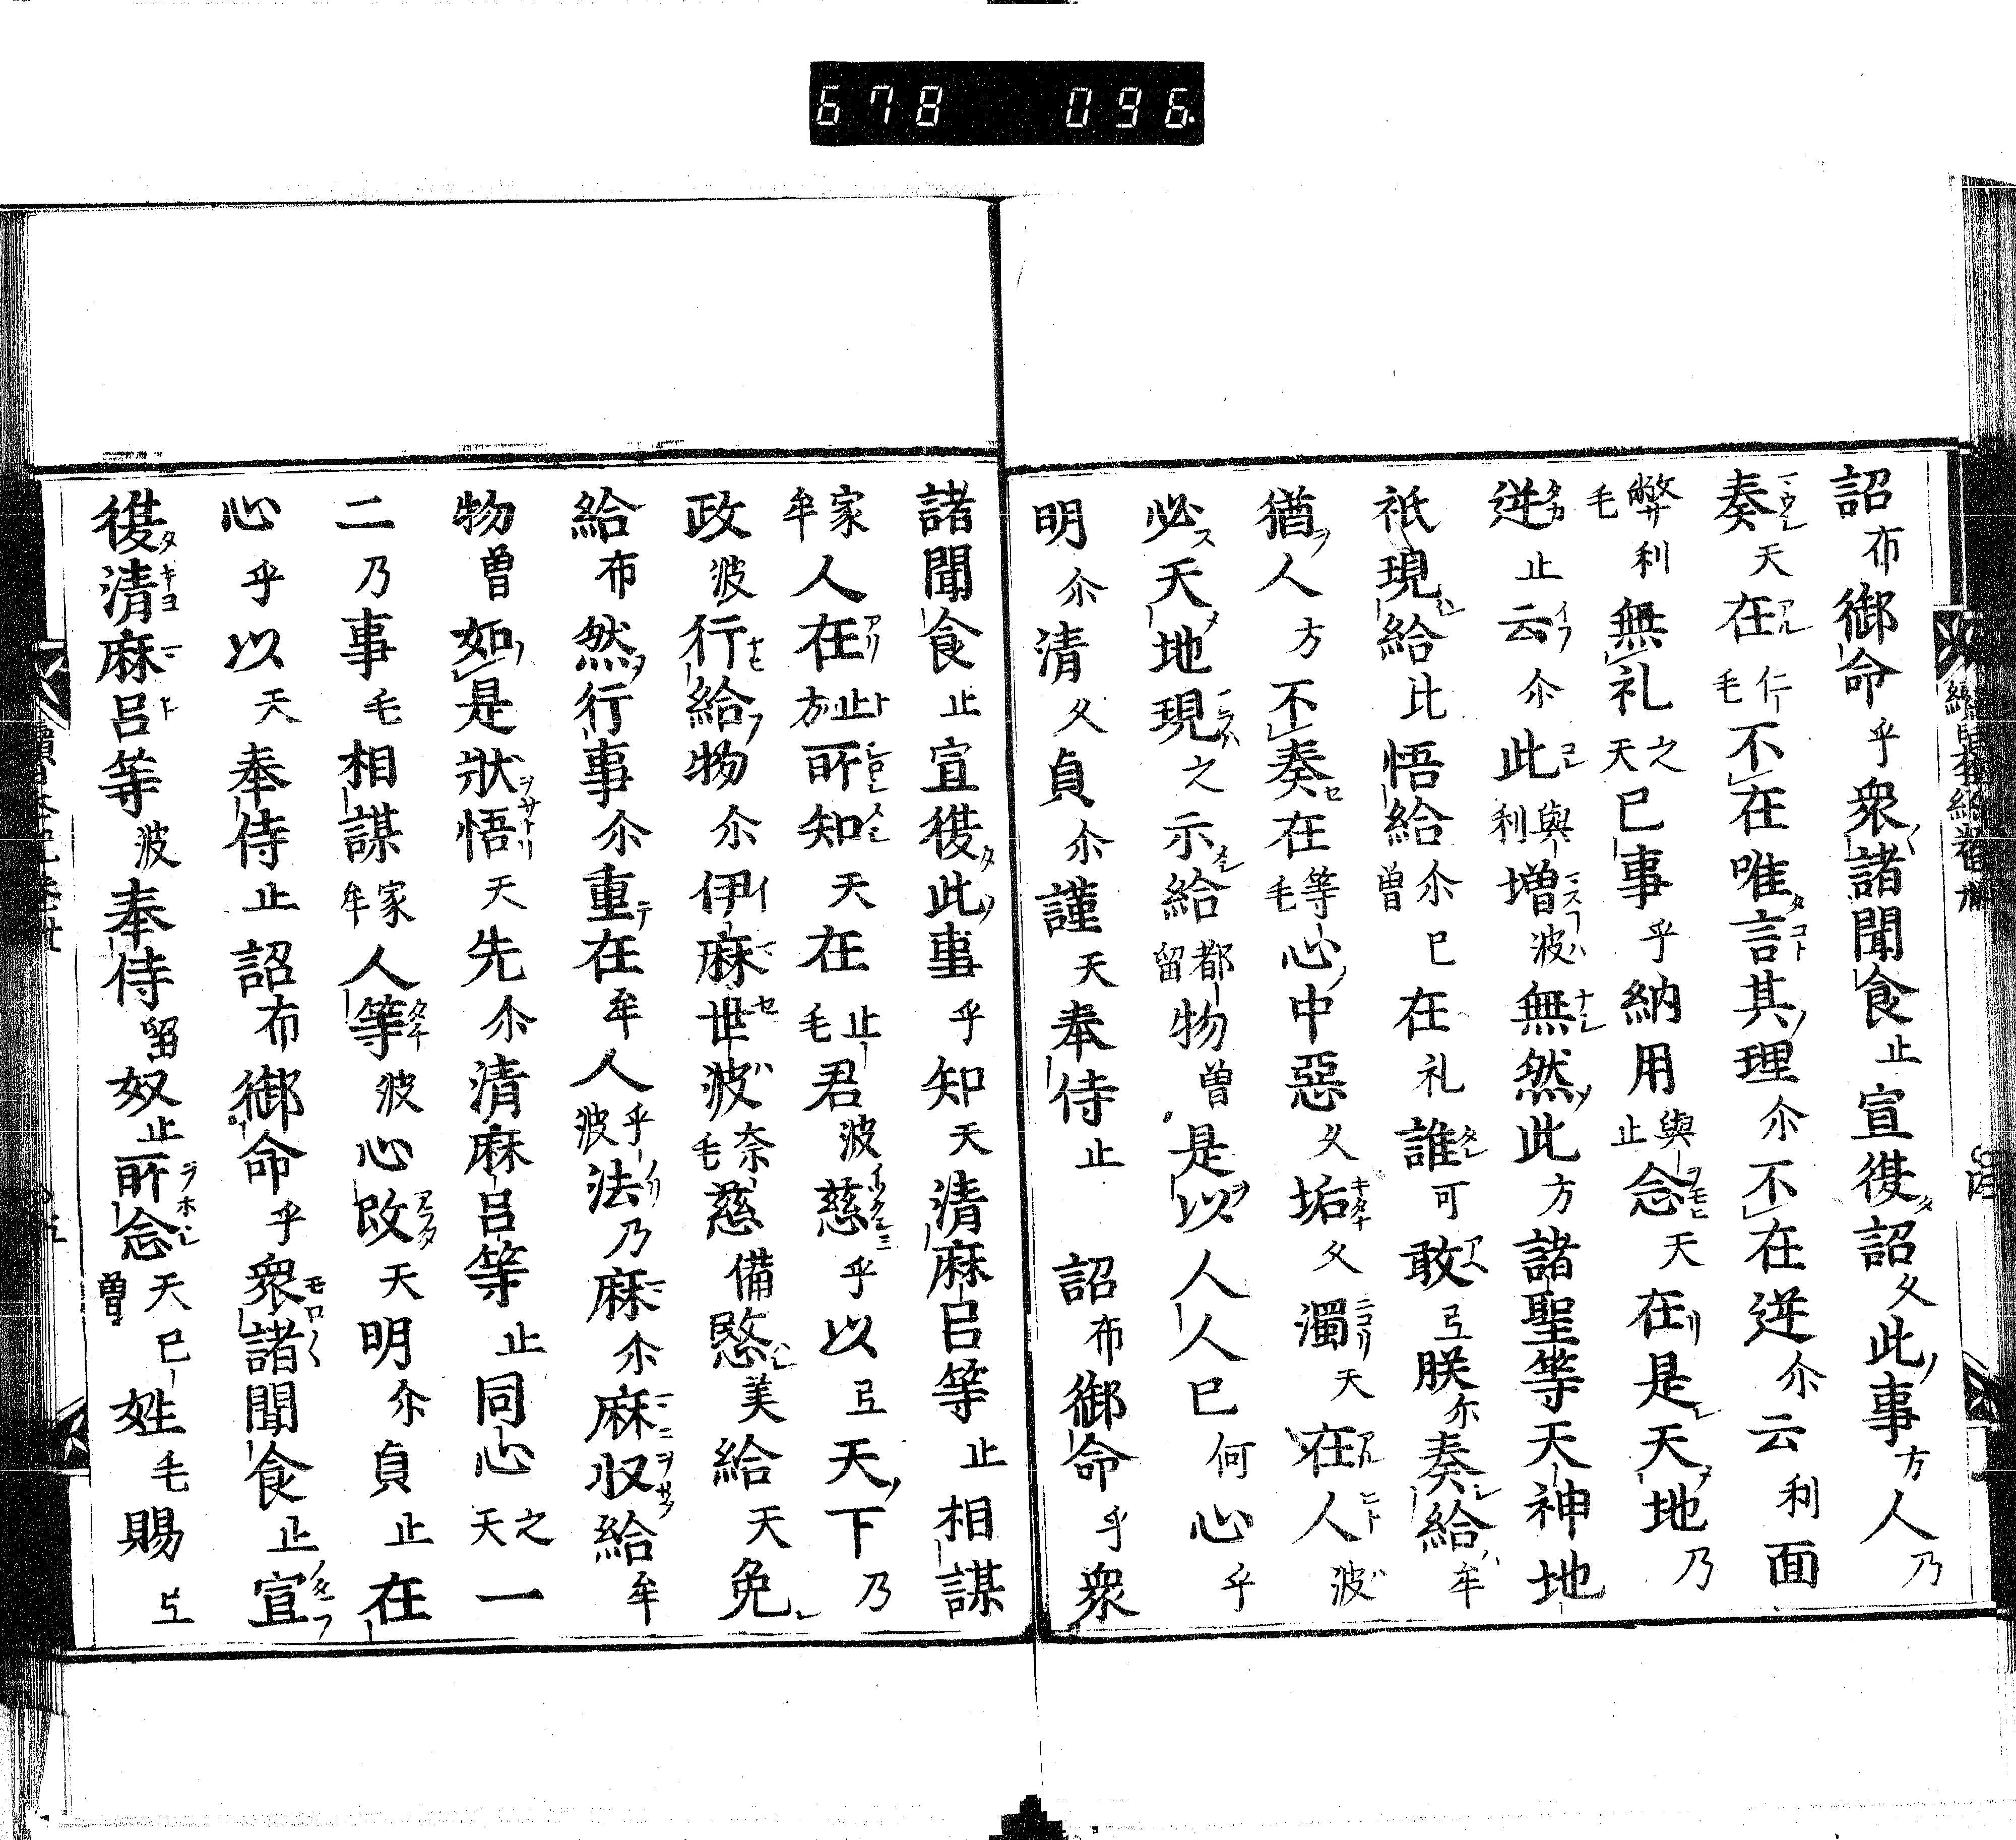 678 096
詔布御命乎衆諸聞食止宣復詔久此事方人乃
奏天在仁毛不在唯言其理尓不在逆尓云利面
弊利毛無礼之天己事乎納用与止念天在是天地乃
逆止云尓此与利増波無然此方諸聖等天神地
祇現給比悟給尓己曽在礼誰可敢弖朕尓奏給牟
猶人方不奏在等毛心中惡久垢久濁天在人波
必天地現之示給都留物曽是以人人己何心乎
明尓清久貞尓謹天奉侍止詔布御命乎衆
諸聞食止宣復此事乎知天清麻呂等止相謀
家牟人在止方所知天在止毛君波慈乎以弖天下乃
政波行給物尓伊麻世波奈毛慈備愍美給天免
給布然行事尓重在牟人乎波法乃麻尓麻収給牟
物曽如是状悟天先尓清麻呂等止同心之天一
二乃事毛相謀家牟人等波心改天明尓貞止在
心乎以天奉侍止詔布御命乎衆諸聞食止宣
復清麻呂等波奉侍留奴止所念天己曽姓毛賜弖